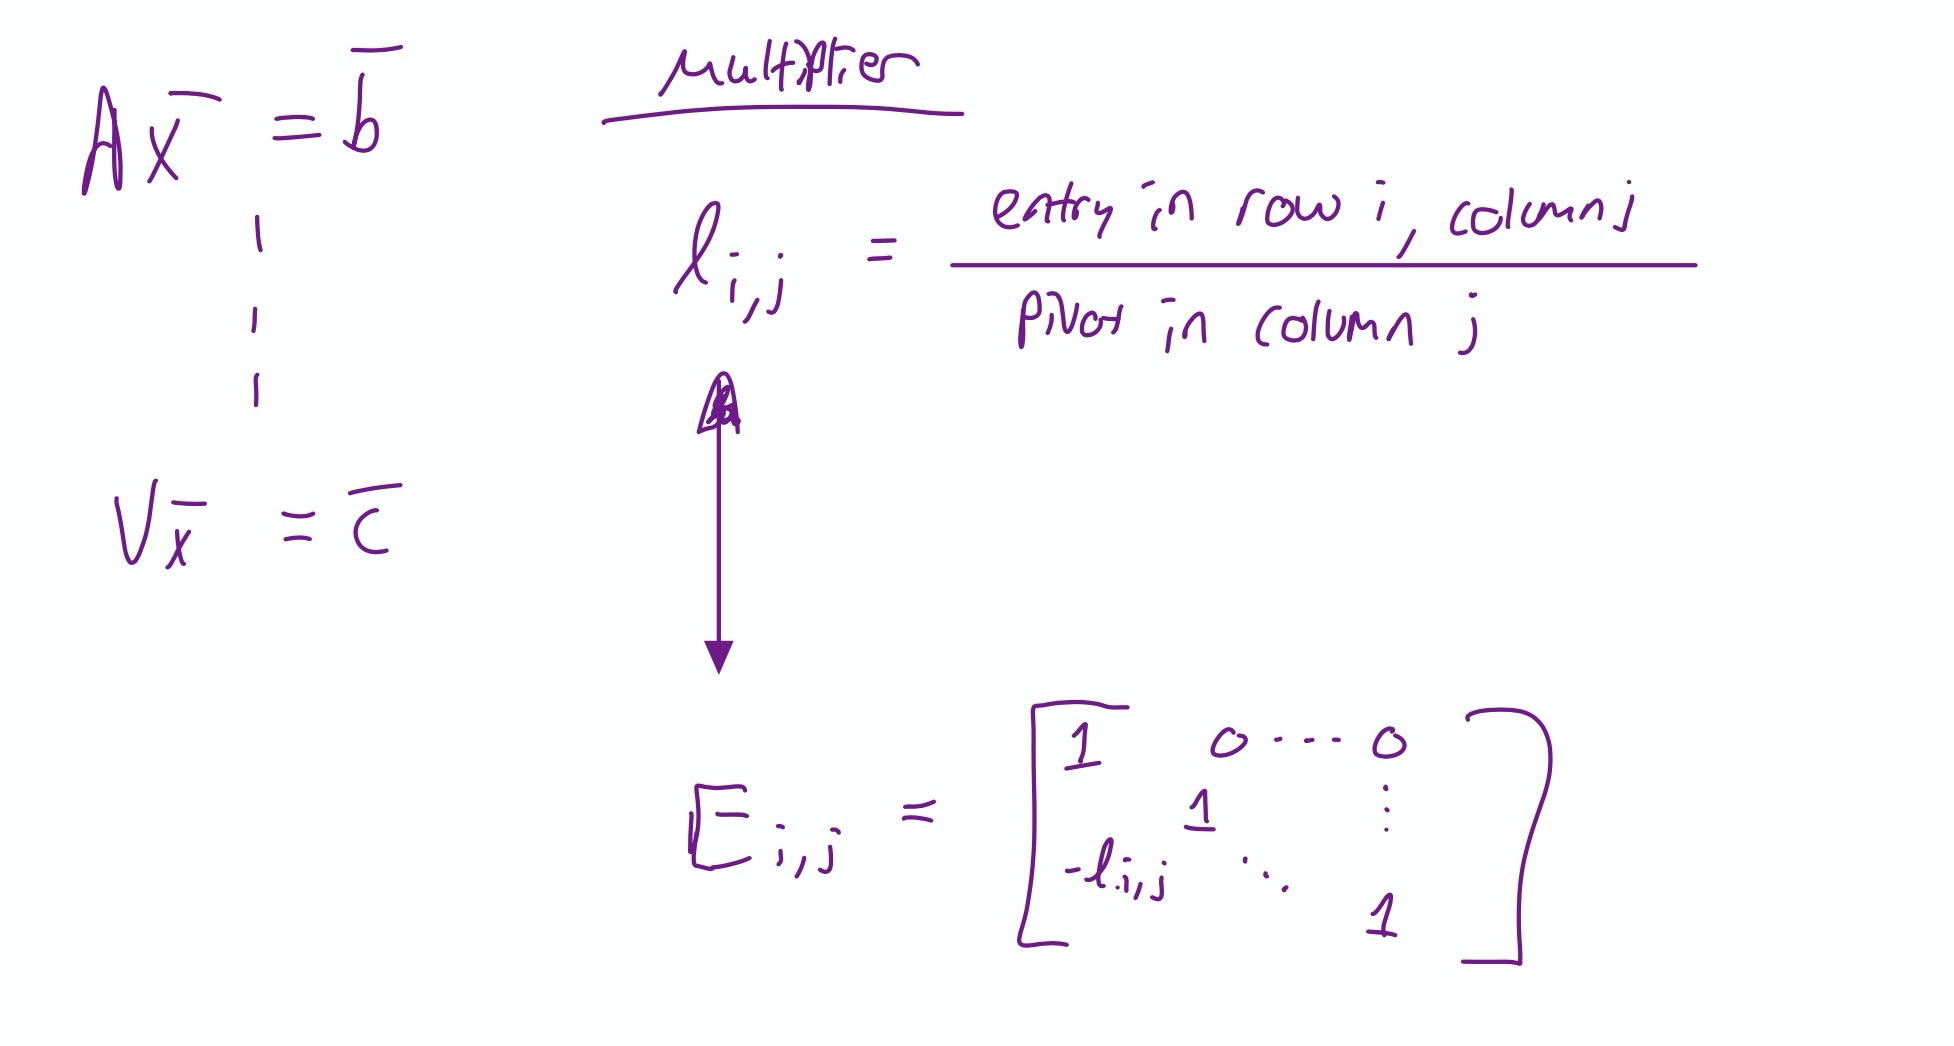 Ax̄ = b̄
Multiplier
ℓi,j = entry in row i, column j
pivot in column j
Vx̄ = c̄
Ei,j = [1 0 ... 0
1 ⋮
-ℓi,j ⋱
1]